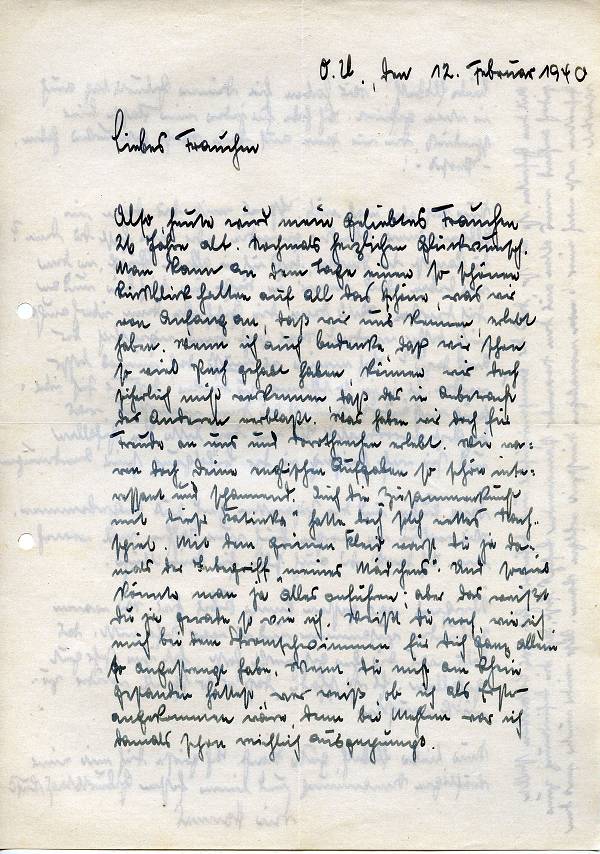 O.U., den 12. Februar 1940
Liebes Frauchen
Also, heute wird mein geliebtes Frauchen
26 Jahre alt. Nochmals herzlichen Glückwunsch.
Man kann an dem Tage einen so schönen
Rückblick halten auf all das Schöne, was wir
von Anfang an, daß wir uns kennen, erlebt
haben. Wenn ich auch bedenke, daß wir schon
so viel Pech gehabt haben, können wir doch
sicherlich nicht verkennen daß das in Anbetracht
des Anderen verblaßt. Was haben wir doch für
Freude an uns und erlebt. Wie wa-
ren doch Deine englischen Aufgaben so schön inte-
ressant und spannend. Auch die Zusammenkunft
mit dieser "Katinka" hatte doch solch nettes Nach-
spiel. Mit dem grünen Kleid warst Du ja da-
mals der Inbegriff "meines Mädchens". Und soviel
könnte man ja alles anführen, aber das weißt
Du ja gerade so wie ich. Weißt Du noch, wie ich
mich bei dem Stromschwimmen für Dich ganz allein
so angestrengt habe. Wenn Du nicht am Rhein
gestanden hättest wer weiß ob ich als Erster
angekommen wäre, denn bei Mehlem war ich
damals schon reichlich ausgepumpt.